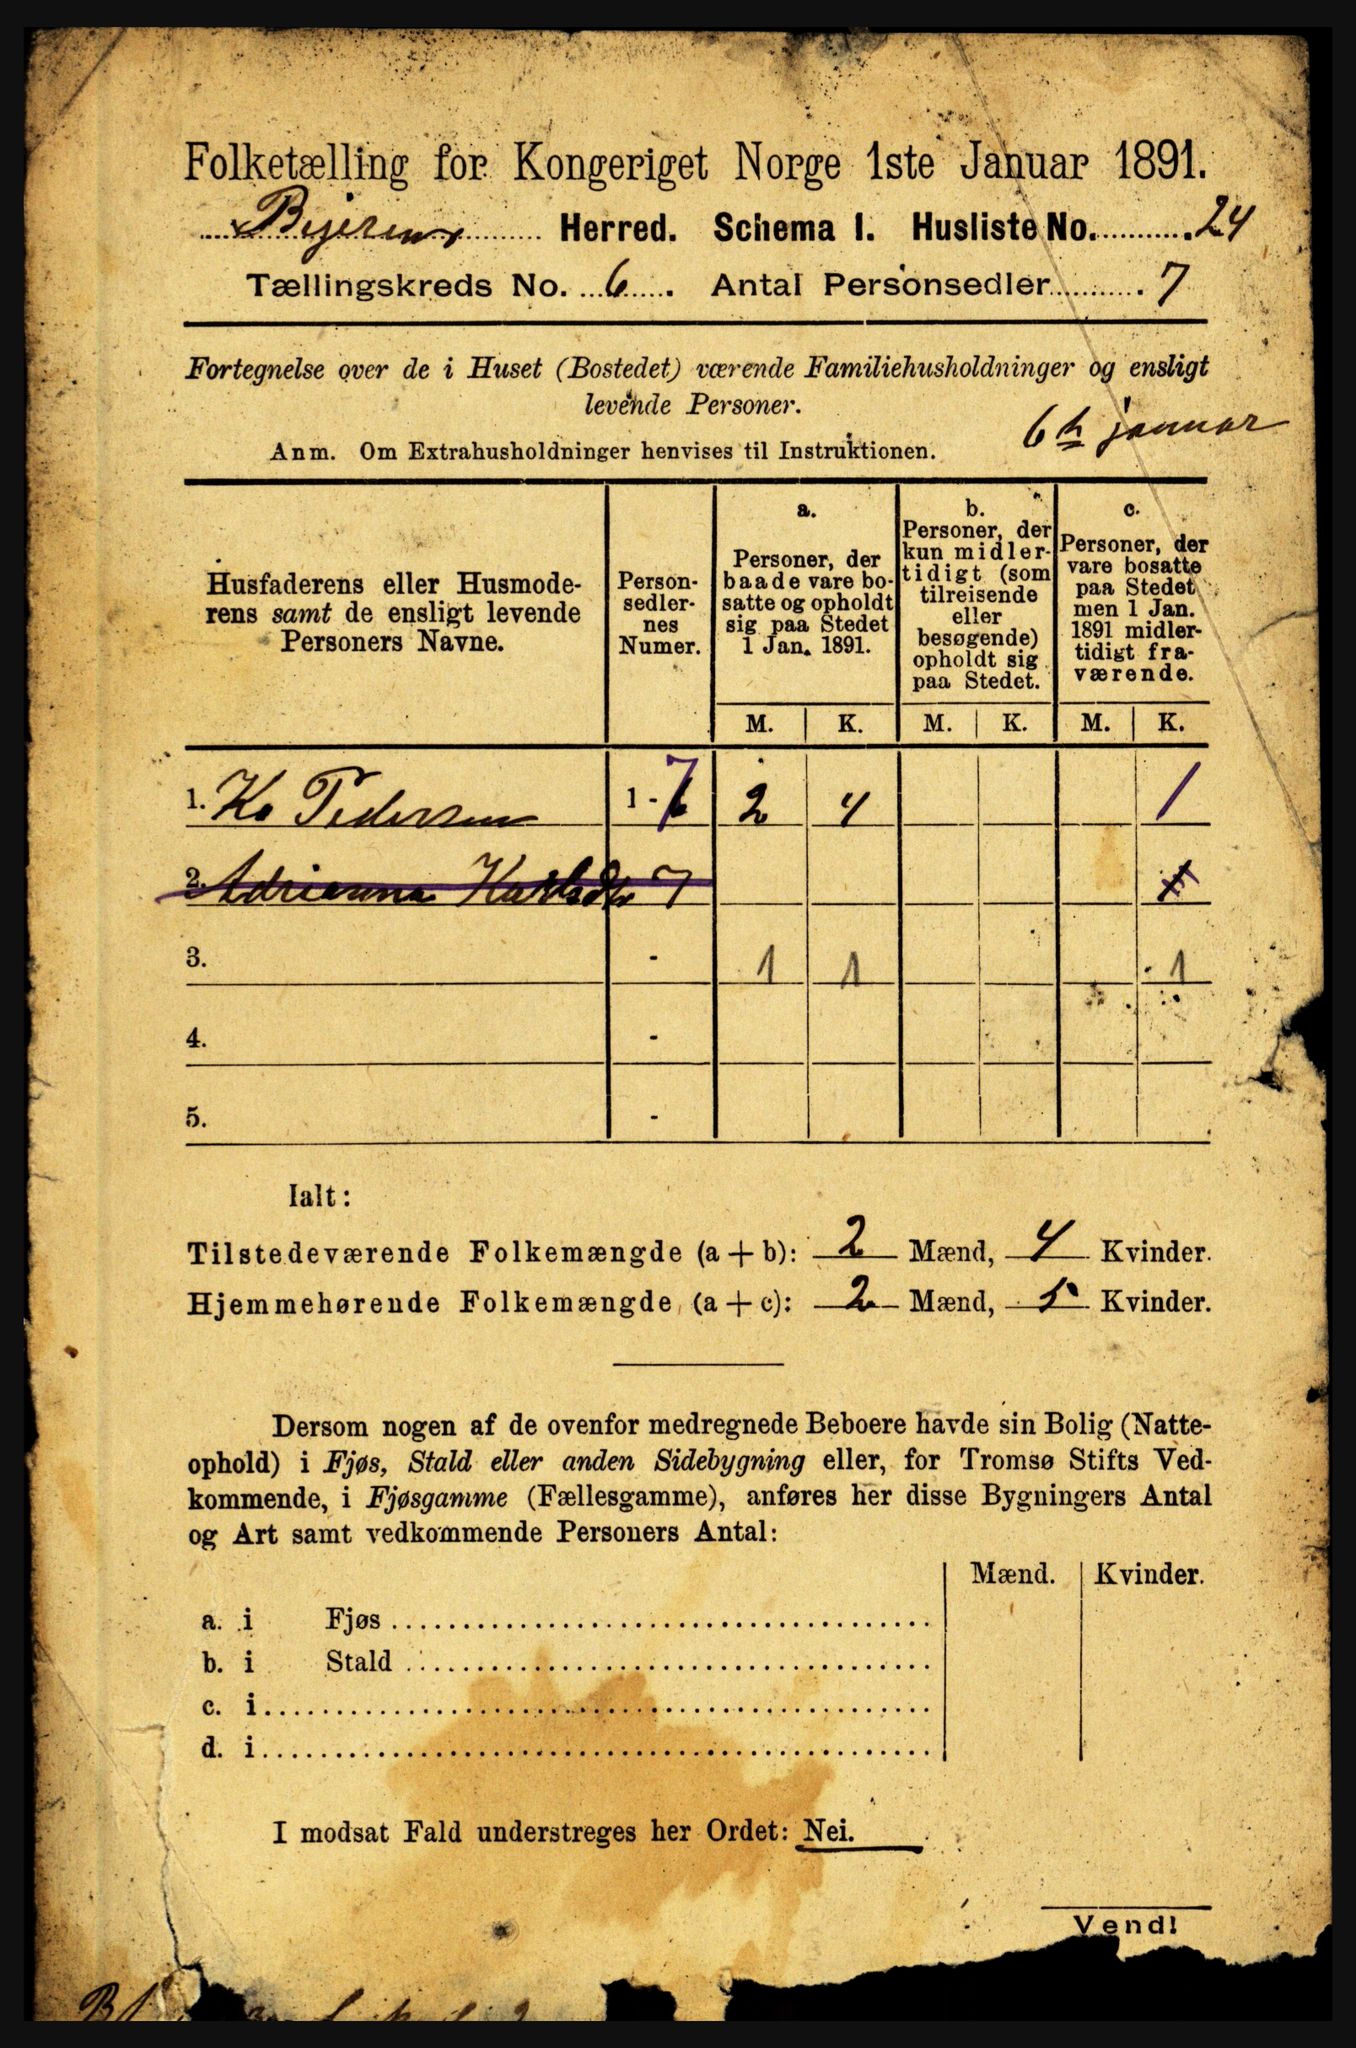 Folketælling for Kongeriget Norge 1ste Januar 1891.
Bejeren Herred. Schema I. Husliste No. 24
Tællingskreds No. 6. Antal Personsedler 7
Fortegnelse over de i Huset (Bostedet) værende Familiehusholdninger og ensligt
levende Personer.
6h januar
Anm. Om Extrahusholdninger henvises til Instruktionen.
Husfaderens eller Husmode-
rens samt de ensligt levende
Personers Navne.
Person-
sedler-
nes
Numer.
a.
Personer, der
baade vare bo-
satte og opholdt
sig paa Stedet
1 Jan. 1891.
b.
Personer, der
kun midler-
tidigt (som
tilreisende
eller
besøgende)
opholdt sig
paa Stedet.
c.
Personer, der
vare bosatte
paa Stedet
men 1 Jan.
1891 midler-
tidigt fra-
værende.
M. K. M. K. M. K.
1. Ko Pedersen 1 - 7 2 4 1
2. Adrianna Karlsdtr 7 1
3. - 1 1 1
4. -
5. -
Ialt:
Tilstedeværende Folkemængde (a + b): 2 Mænd, 4 Kvinder.
Hjemmehørende Folkemængde (a + c): 2 Mænd, 5 Kvinder.
Dersom nogen af de ovenfor medregnede Beboere havde sin Bolig (Natte-
ophold) i Fjøs, Stald eller anden Sidebygning eller, for Tromsø Stifts Ved-
kommende, i Fjøsgamme (Fællesgamme), anføres her disse Bygningers Antal
og Art samt vedkommende Personers Antal:
Mænd. Kvinder.
a. i Fjøs
b. i Stald
c. i
d. i
I modsat Fald understreges her Ordet: Nei.
Vend!